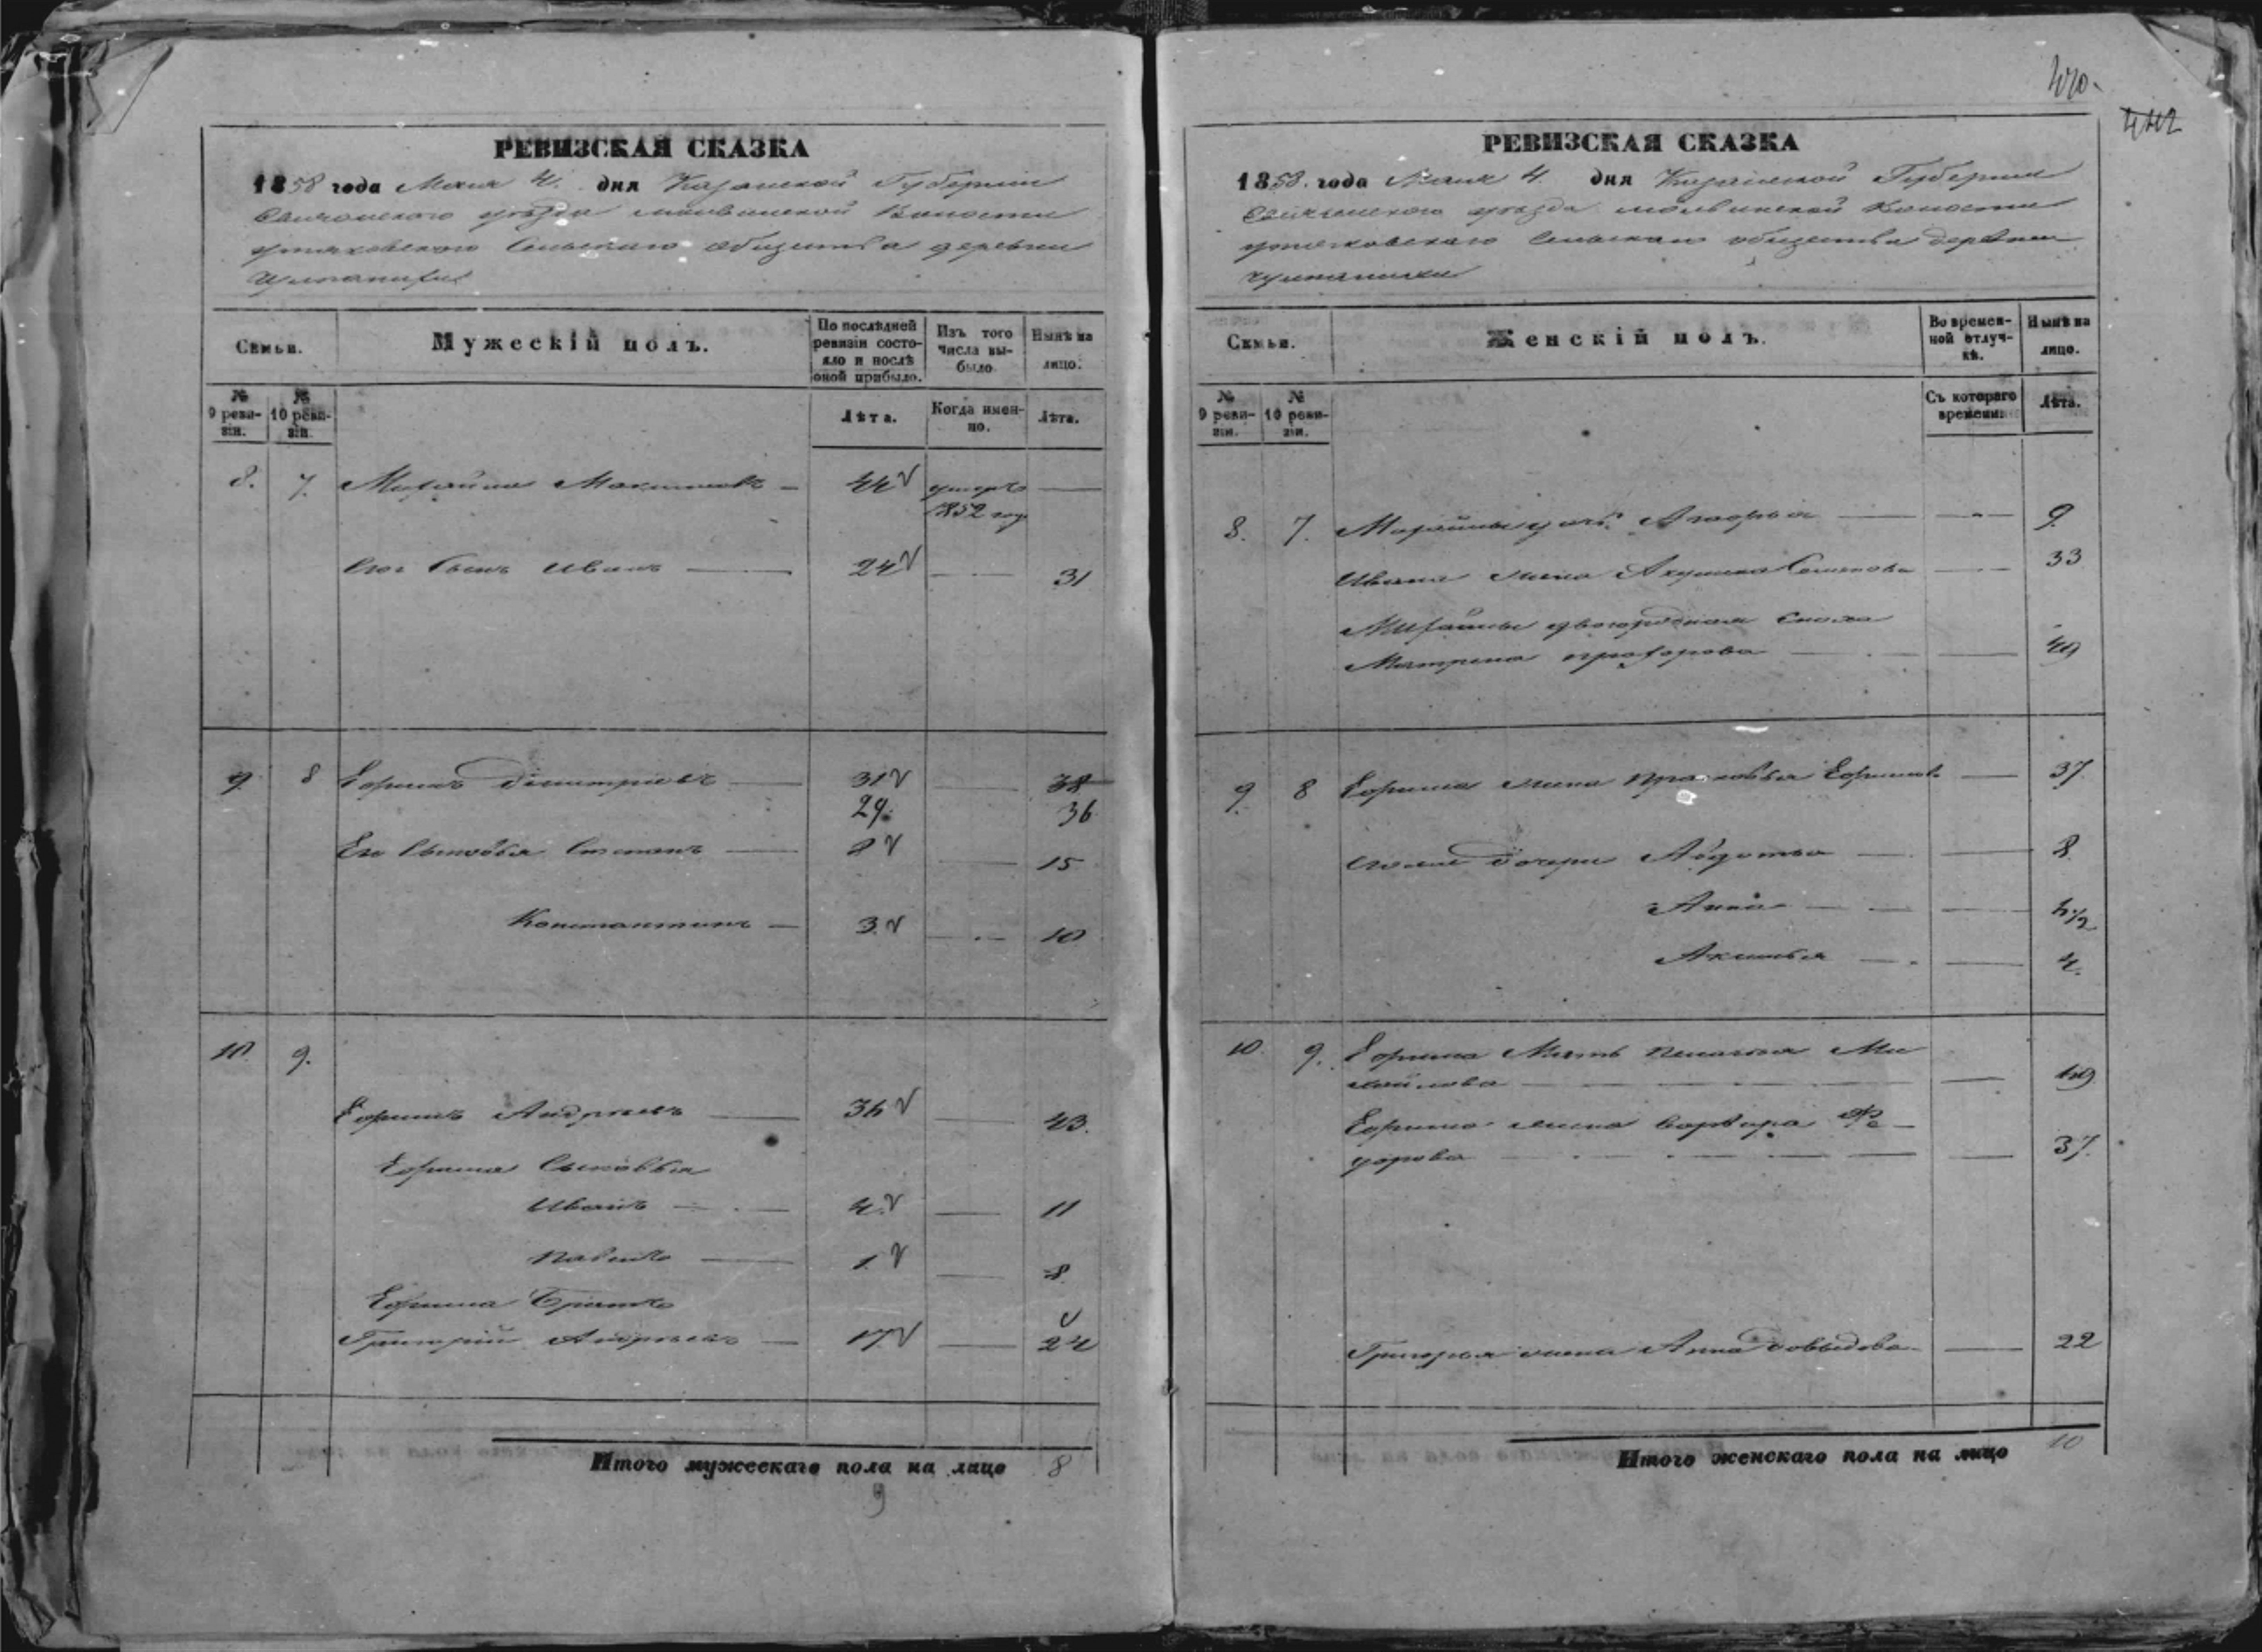 440.
442
РЕВИЗСКАЯ СКАЗКА
1858 года Маия 4. дня Казанской Губернии
уѣзда Волости
Сельскаго общества деревни
Семьи.
Мужескій полъ.
По послѣдней ревизіи состояло и послѣ оной прибыло.
Изъ того числа выбыло.
Нынѣ на лицо.
№ 9 ревизіи.
№ 10 ревизіи.
Лѣта.
Когда именно.
Лѣта.
8. 7. Михайла Максимовъ — 44 умеръ —
1852 году
Его Сынъ Иванъ — 24 — 31
9. 8 Ефимъ Дмитріевъ — 31 — 38
29. 36
Его Сыновья Степанъ — 8 — 15
Константинъ — 3. — 10
10. 9.
Ефимъ Андреевъ — 36 — 43.
Ефима Сыновья
Иванъ — 4. — 11
Павелъ — 1. — 8
Ефима Братъ
Григорій Андреевъ — 17 — 24
Итого мужескаго пола на лицо 8
9
РЕВИЗСКАЯ СКАЗКА
1858. года Маия 4. дня Казанской Губернии
уѣзда Волости
Сельскаго общества деревни
Семьи.
Женскій полъ.
Во временной отлучкѣ.
Нынѣ на лицо.
№ 9 ревизіи.
№ 10 ревизіи.
Съ котораго времени.
Лѣта.
8. 7. Михайлы — 9.
Ивана жена Акулина Семенова — 33
Михайлы двоюродная сноха
Матрена Прохорова — 49
9. 8 Ефима жена Прасковья Ефимова — 37.
дочери Авдотья — 8.
Анна — 4 1/2
Аксинья — 4.
10. 9. Ефима Мать Пелагея Ми
хайлова — 49
Ефима жена Варвара Фе
дорова — 37.
Григорья жена Анна Давыдова — 22
Итого женскаго пола на лицо 10